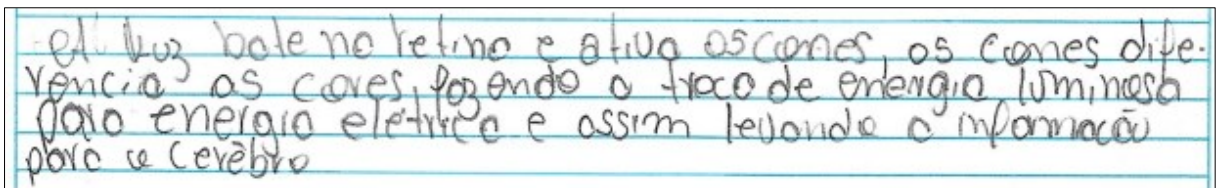 A luz bate na retina e ativa os cones, os cones dife-
rência as cores, fazendo a troca de energia luminosa
para energia elétrica e assim levando a informação
para o cerébro